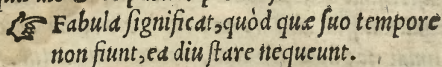 ☞ Fabula ſignificat, quòd quæ ſuo tempore
non fiunt, ea diu ſtare nequeunt.